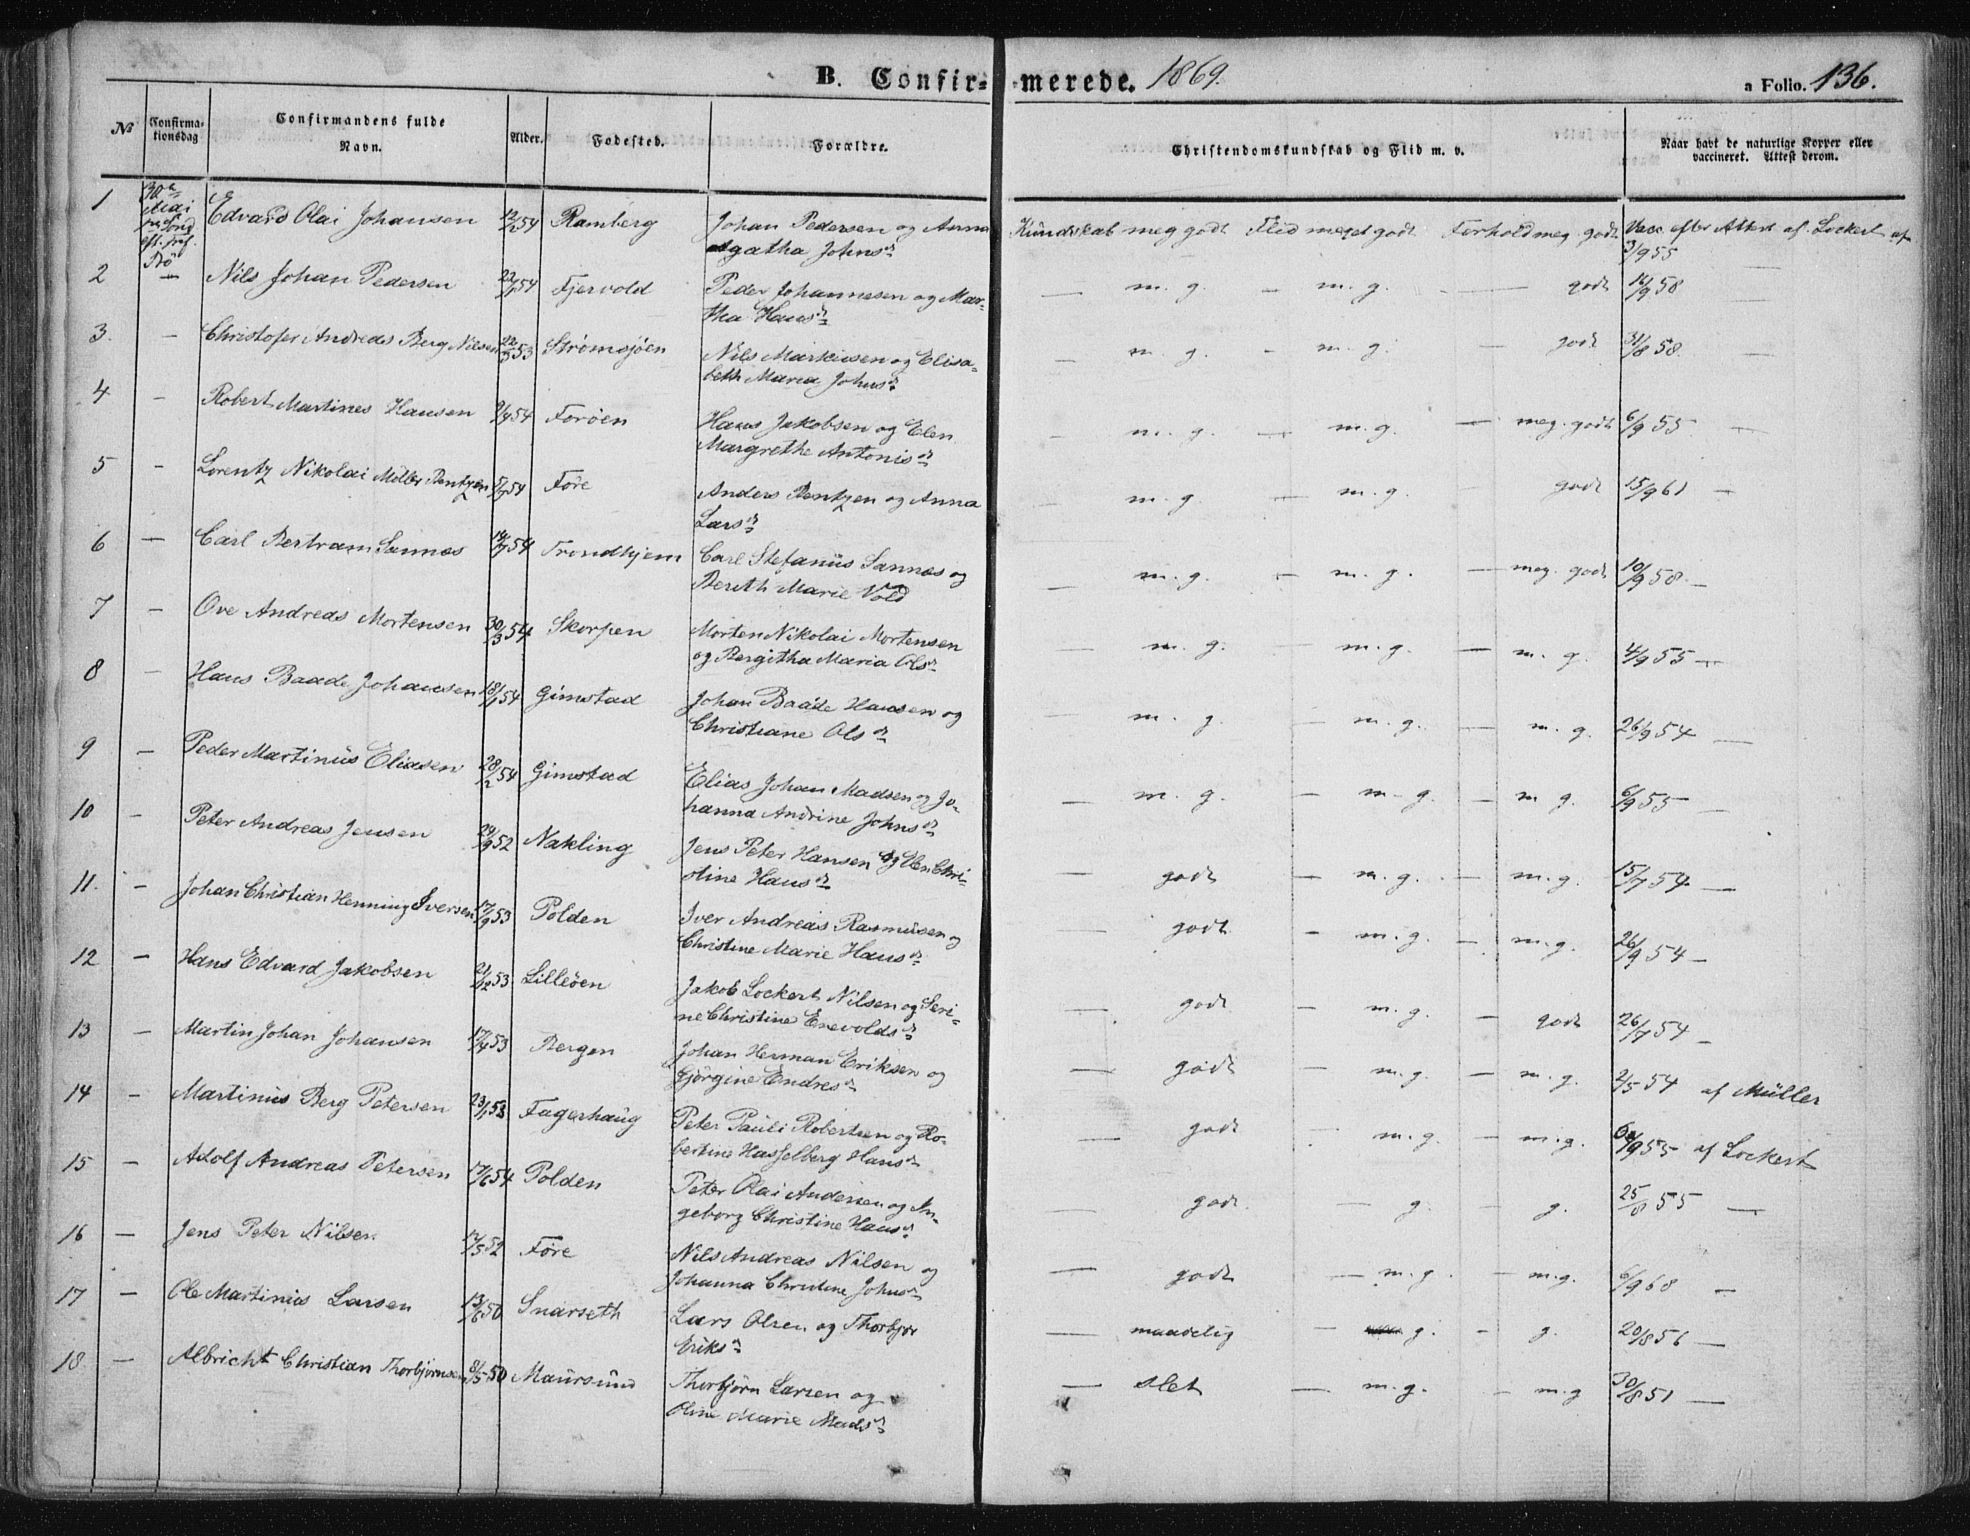 B. Confir= merede. 1869. a Folio. 136.
No Confirma-tionsdag Confirmandens fulde Navn. Alder. Fødested. Forældre. Christendomskundskab og Flid m. v. Naar havt de naturlige Kopper eller vaccineret. Attest derom.
1 Mai Edvard Olai Johansen 54 Ramberg Johan Pedersen og Anna Kundskab meg godt Flid meget godt Forhold meg. godt Vacc. efter Attest af Lockert af
Agatha Johnsd 3/9 55
2 — Nils Johan Pedersen 54 Fjervold Peder Johannesen og Mar- — m. g. — m. g. — godt 16/9 58 —
tha Hansd
3. — Christofer Andreas Berg Nilsen 53 Strømsjöen Nils Markusen og Elisa- — m. g. — m. g. — godt 31/8 58. —
beth Maria Johnsd
4 — Robert Martines Hansen 9/4 54 Foröen Hans Jakobsen og Elen — m. g. — m. g. — meg. godt 6/9 55 —
Margrethe Antonisd
5 — Lorentz Nikolai Möller Bentzen 54 Føre Anders Bentzen og Anna — m. g. — m. g. — godt 15/9 61 —
Larsd
6 — Carl Bertram Sannes 54 Trondhjem Carl Stefanus Sannes og — m. g. — m. g. — meg. godt 10/9 58 —
Bereth Marie Vold
7 — Ove Andreas Mortensen 30/3 54 Skorpen Morten Nikolai Mortensen — m. g. — m. g. — m. g. 4/9 55 —
og Bergitha Maria Olsd
8 — Hans Baade Johansen 18/1 54 Gimstad Johan Baade Hansen og — m. g. — m. g. — m. g. 26/9 54 —
Christiane Olsd
9 — Peder Martinus Eliasen 28/2 54 Gimstad Elias Johan Madsen og Jo- — m. g. — m. g. — m g. 6/9 55 —
hanna Andrine Johnsd
10 — Peter Andreas Jensen 29/9 52 Nakling Jens Peter Hansen og Elen Chri- — godt — m. g. — m. g. 15/7 54 —
stine Hansd
11. — Johan Christian Henning Iversen 17/9 53 Polden Iver Andreas Rasmusen og — godt — m. g. — m. g. 26/9 54 —
Christine Marie Hansd
12 — Hans Edvard Jakobsen 21/12 53 Lilleöen Jakob Lockert Nilsen og Seri- — godt — m. g. — godt 26/7 54 —
ne Christine Enevoldsd
13 — Martin Johan Johansen 17/4 53 Bergen Johan Herman Eriksen og — godt — m. g. — m. g. 2/5 54 af Müller
Gjörgine Endresd
14 — Martinus Berg Petersen 23/1 53 Fagerhaug Peter Pauli Robertsen og Ro- — godt — m. g. — m. g. 6/9 55 af Lockert
bertine Hasselberg Hansd
15 — Adolf Andreas Petersen 17/6 54 Polden Peter Olai Andersen og In- — godt. — g. — g. 25/8 55 —
geborg Christine Hansd
16 — Jens Peter Nilsen 17/5 52 Føre Nils Andreas Nilsen og — godt — m. g. — m. g. 6/9 68 —
Johanna Christine Johnsd
17 — Ole Martinius Larsen 13/6 50 Snarseth Lars Olsen og Thorbjør — maadelig — g. — g. 20/8 56 —
Eriksd
18 — Albricht Christian Thorbjørnsen 8/5 50 Maursund Thorbjörn Larsen og — slet — m. g. — m. g 30/8 51 —
Oline Marie Madsd